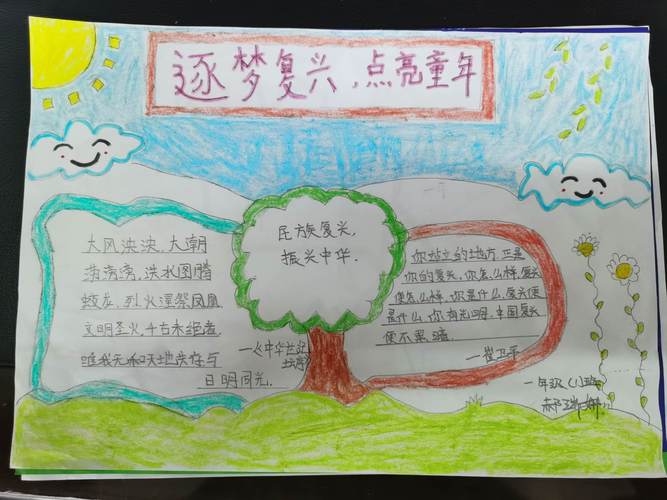 逐梦复兴,点亮童年
大风泱泱,大潮
滂滂,洪水图腾
蛟龙,烈火涅槃凤凰
文明圣火,千古未绝者
唯我无和天地共存与
日明同光。
——《中华世纪坛序》
民族复兴,
振兴中华.
你站立的地方,正是
你的复兴,你怎么样,复兴
便怎么样,你是什么,复兴便
是什么,你有光明,中国复兴
便不黑暗.
——崔卫平
一年级(1)班